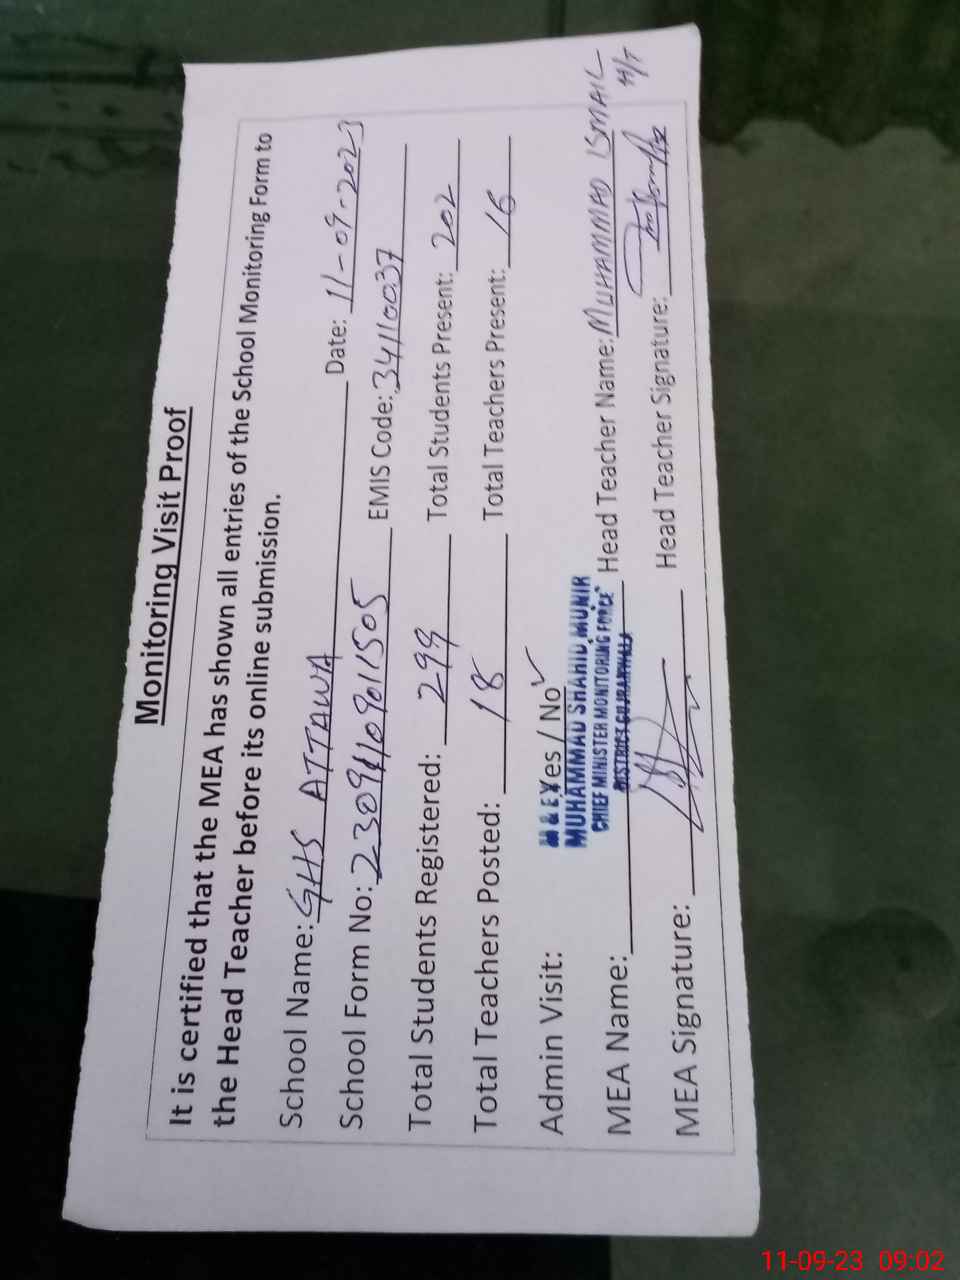 Monitoring Visit Proof
It is certified that the MEA has shown all entries of the School Monitoring Form to
the Head Teacher before its online submission.
School Name: GHS ATTAWA Date: 11-09-2023
School Form No: 2309110901505 EMIS Code: 34110037
Total Students Registered: 299 Total Students Present: 202
Total Teachers Posted: 18 Total Teachers Present: 16
Admin Visit: Yes / No ✓
M & E
MUHAMMAD SHAHID MUNIR
CHIEF MINISTER MONITORING FORCE
DISTRICT GUJRANWALA
MEA Name: Head Teacher Name: MUHAMMAD ISMAIL
H/T
MEA Signature: Head Teacher Signature:
11-09-23 09:02